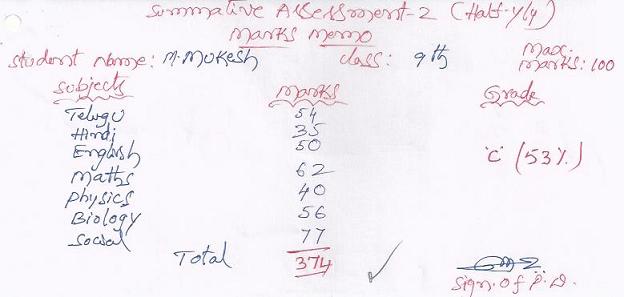 Summative Assessment-2 (Half-yly)
Marks Memo
Student name: M. Mukesh Class: 9th Max. Marks: 100
Subjects Marks Grade
Telugu 54
Hindi 35
English 50 'C' (53%)
Maths 62
Physics 40
Biology 56
Social 77
Total 374
Sign. of P.D.